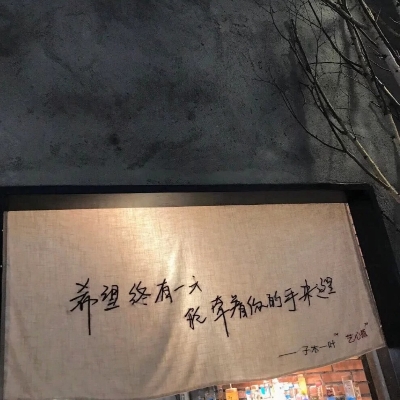 希望终有一天
能牵着你的手来这里
——子木一叶"艺心贰"